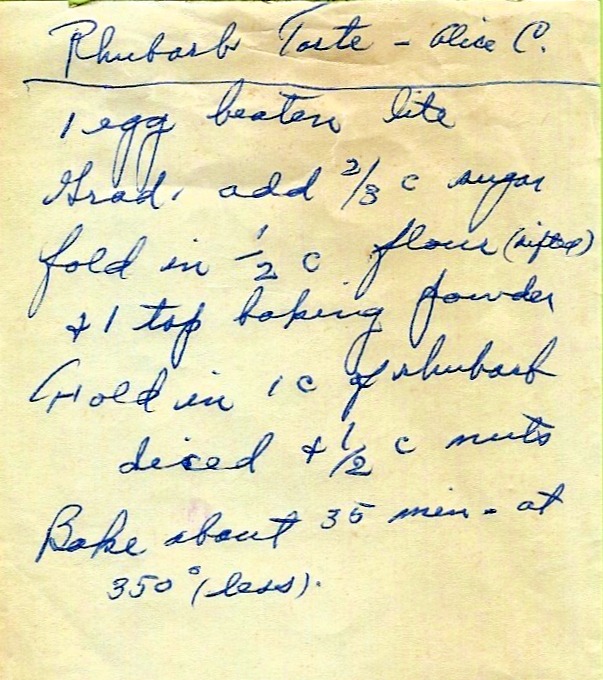 Rhubarb Torte - Alice C.
1 egg beaten lite
Grad. add 2/3 c sugar
fold in 1/2 c flour (sifted)
+ 1 tsp baking powder
Fold in 1 c of rhubarb
diced + 1/2 c nuts
Bake about 35 min - at
350° (less).